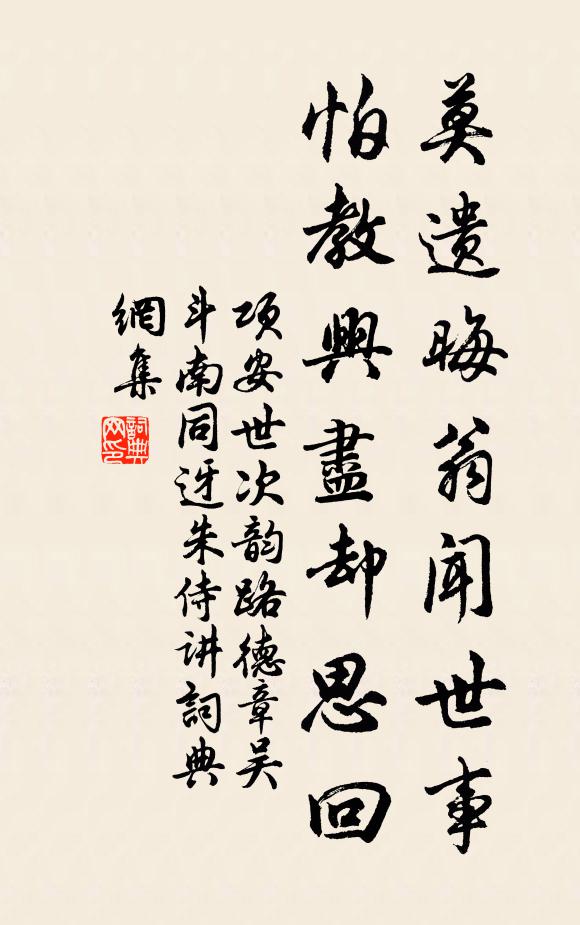 莫遣晦翁聞世事
怕教興盡却思回
項安世次韵路德章吴
斗南同迓朱侍讲詞典
網集
詞典
网印